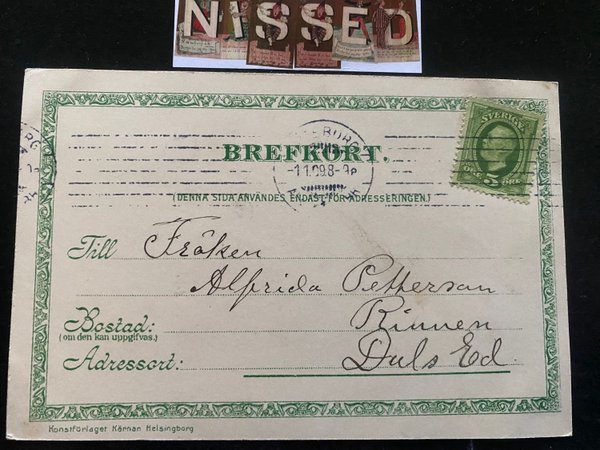 NISSED
BREFKORT.
SVERIGE
5
ÖRE
-1.1.09.8-9P
(DENNA SIDA ANVÄNDES ENDAST FÖR ADRESSERINGEN.)
Till Fröken
Alfrida Petterson
Bostad: Rinnen
(om den kan uppgifvas.)
Adressort: Dals Ed.
Konstförlaget Kärnan Helsingborg